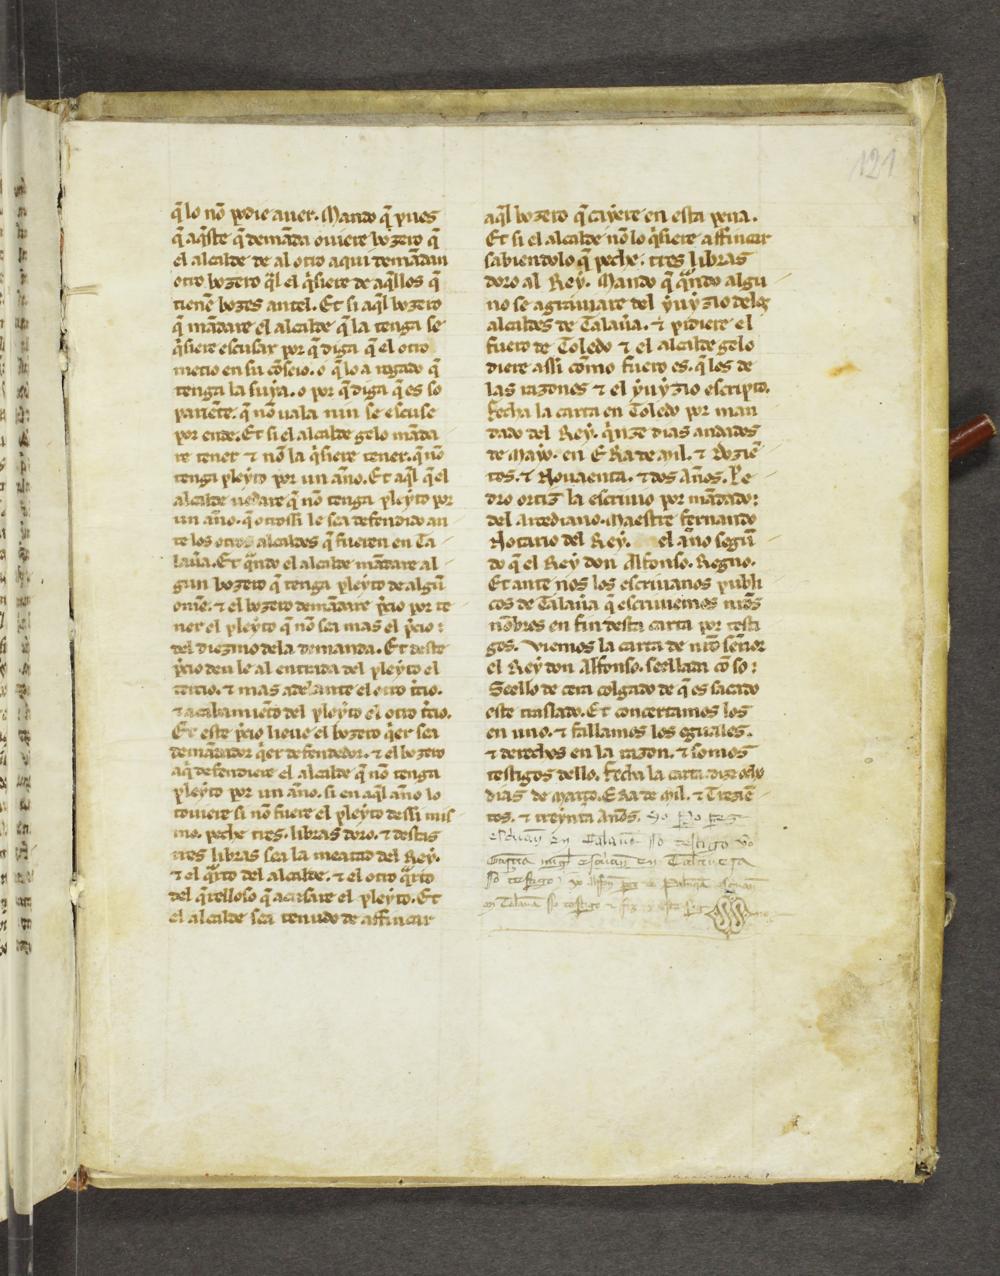 q̃ lo nõ podie auer. Mando q̃ pues
q̃ aq̃ste q̃ demãda ouiere bozero q̃
el alcalde de al otro aqui demãdan
otro bozero q̃l el q̃siere de aq̃llos q̃
tienẽ bozes antel. Et si aq̃l bozero
q̃ mãdare el alcalde q̃ la tenga se
q̃siere escusar por q̃ diga q̃ el otro
metio en su cõseio. o q̃ lo a rogado q̃
tenga la suya. o por q̃ diga q̃ es so
pariẽte. q̃ nõ uala nin se escuse
por ende. Et si el alcalde gelo mãda
re tener ⁊ nõ la q̃siere tener. q̃ nõ
tenga pleyto por un año. Et aq̃l q̃ el
alcalde uedare q̃ nõ tenga pleyto por
un año. q̃ otrossi le sea defendido an
te los otros alcaldes q̃ fueren en Ta
lau̾a. Et q̃ndo el alcalde mãdare al
gun bozero q̃ tenga pleyto de algũ
ome. ⁊ el bozero demãdare p̃cio por te
ner el pleyto q̃ nõ sea mas el p̃cio :
del diezmo dela demanda. Et deste
p̃cio den le al entrada del pleyto el
tercio. ⁊ mas adelante el otro t̃cio.
⁊ acabamiẽto del pleyto el otro t̃cio.
Et este p̃cio lieue el bozero q̃er sea
demãdador q̃er defendedor. ⁊ el bozero
aq̃ defendiere el alcalde q̃ nõ tenga
pleyto por un año. si en aq̃l año lo
touiere si nõ fuere el pleyto dessi mis
mo. peche tres. libras doro. ⁊ destas
tres libras sea la meatad del Rey.
⁊ el q̃rto del alcalde. ⁊ el otro q̃rto
del q̃relloso q̃ acusare el pleyto. Et
el alcalde sea tenudo de affincar
aq̃l bozero q̃ cayere en esta pena.
Et si el alcalde nõ lo q̃siere affincar
sabiendolo q̃ peche. tres libras
doro al Rey. Mando q̃ q̃ndo algu
no se agrauiare del yuyzio delos
alcaldes de Talau̾a. ⁊ pidiere el
fuero de Toledo ⁊ el alcalde gelo
diere assi cõmo fuero es. q̃ les de
las razones ⁊ el yuyzio escripto.
Fecha la carta en Toledo por man
dado del Rey. q̃nze dias andados
de Mayo. en Era de Mil. ⁊ Dozie̅
tos. ⁊ Nouaenta. ⁊ dos años. Pe
dro ortiz la escriuio por mãdado :
del arcediano. Maestre fernando
Notario del Rey. el año segũ
do q̃ el Rey don Alfonso. Regno.
Et ante nos los escriuanos publi
cos de Talau̾a q̃ escriuiemos nr̃os
nõbres en fin desta carta por testi
gos. Viemos la carta de nr̃o señor
el Rey don Alfonso. seellada cõ so :
Seello de cera colgado de q̃ es sacado
este traslado. Et concertamos los
en uno. ⁊ fallamos los eguales.
⁊ derechos en la razon. ⁊ somos
testigos dello. Fecha la carta. diz ocho
dias de março. Era de Mil. ⁊ Trezie̅
tos. ⁊ treynta Años. Yo Pero perez
escriuano en Talauera so testigo yo
Garcia migl escriuano en Talauera
so testigo
en Talauera so testigo
121